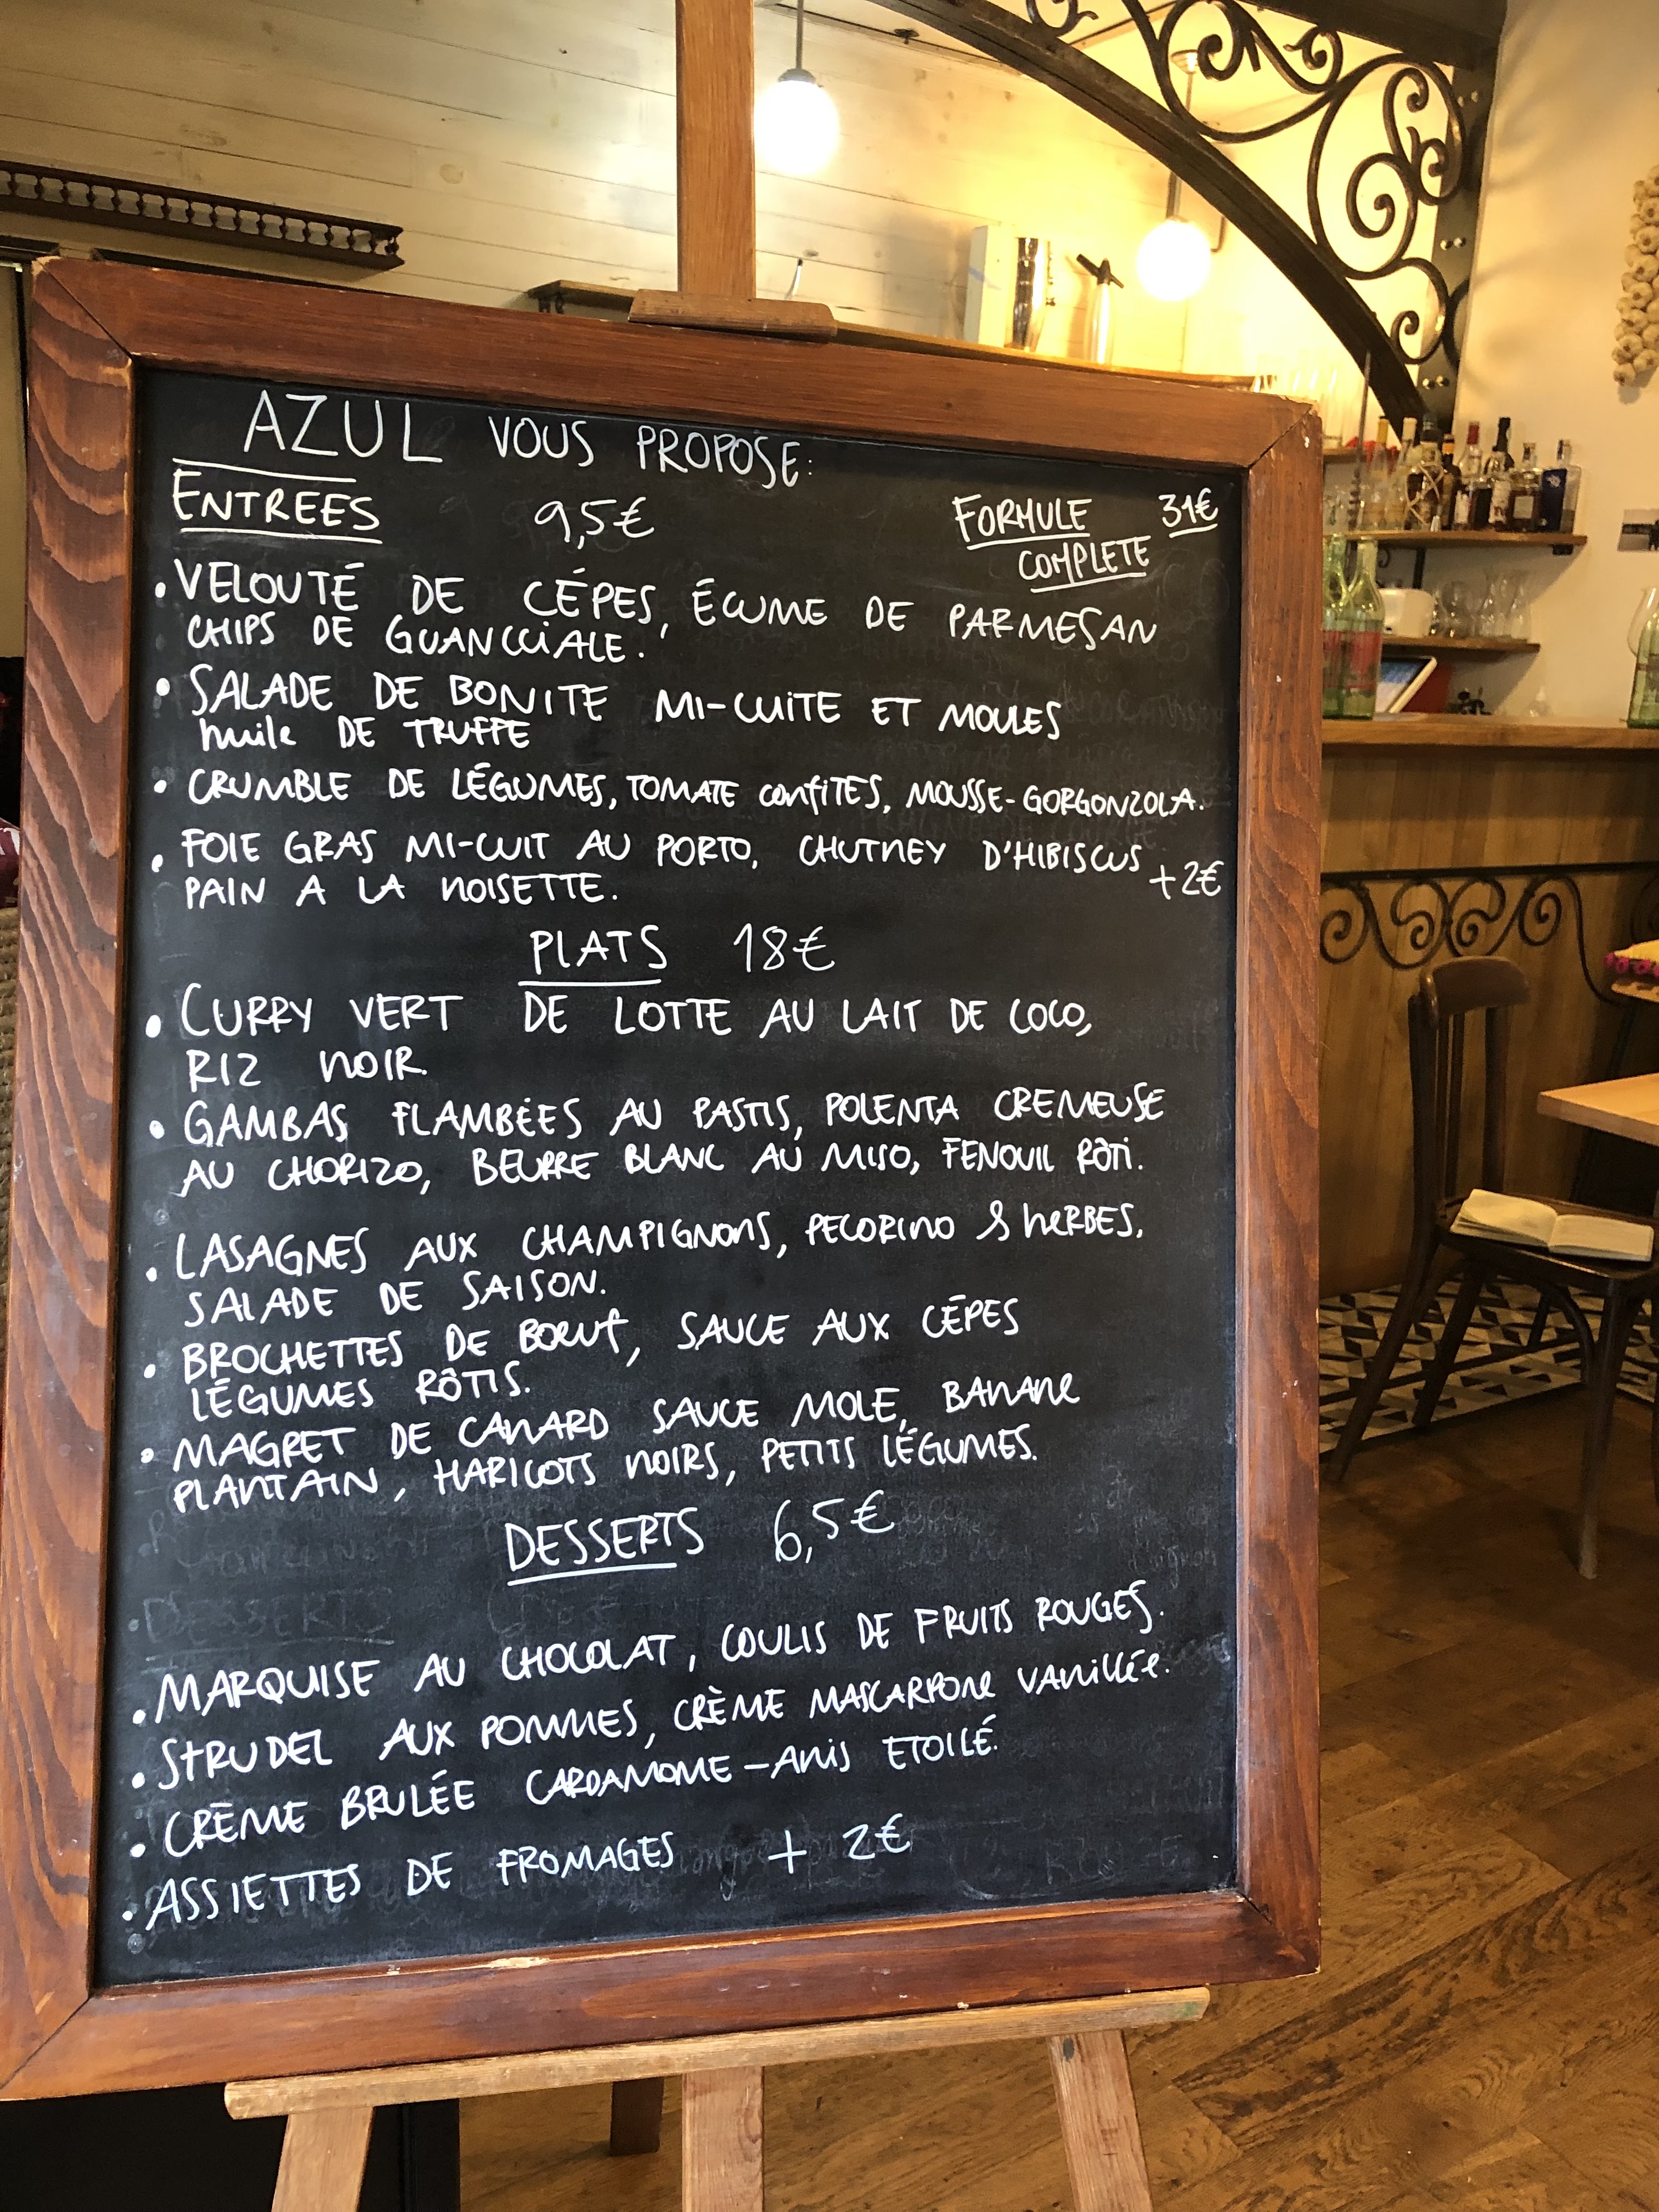 AZUL VOUS PROPOSE:
ENTREES 9,5€ FORMULE 31€
COMPLETE
• VELOUTÉ DE CÉPES, ÉCUME DE PARMESAN
CHIPS DE GUANCCIALE.
• SALADE DE BONITE MI-CUITE ET MOULES
huile DE TRUFFE
• CRUMBLE DE LÉGUMES, TOMATE confiTES, MOUSSE-GORGONZOLA.
• FOIE GRAS MI-CUIT AU PORTO, CHUTNEY D'HIBISCUS +2€
PAIN A LA NOISETTE.
PLATS 18€
• CURRY VERT DE LOTTE AU LAIT DE COCO,
RIZ NOIR.
• GAMBAS FLAMBÉES AU PASTIS, POLENTA CREMEUSE
AU CHORIZO, BEURRE BLANC AU MISO, FENOUIL RÔTI.
• LASAGNES AUX CHAMPIGNONS, PECORINO & hERBES,
SALADE DE SAISON.
• BROCHETTES DE BOEUf, SAUCE AUX CÉPES
LÉGUMES RÔTIS.
• MAGRET DE CANARD SAUCE MOLE, BANANE
PLANTAIN, HARICOTS NOIRS, PETITS LÉGUMES.
DESSERTS 6,5€
• MARQUISE AU CHOCOLAT, COULIS DE FRUITS ROUGES.
• STRUDEL AUX POMMES, CRÈME MASCARPONE VANillée.
• CRÈME BRULÉE CARDAMOME-ANIS ETOILÉ.
• ASSIETTES DE FROMAGES + 2€